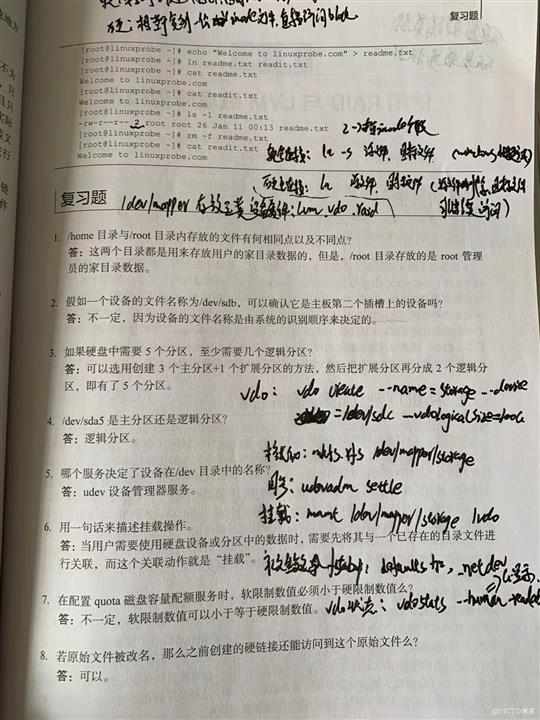 复习题
[root@linuxprobe ~]# echo "Welcome to linuxprobe.com" > readme.txt
[root@linuxprobe ~]# ln readme.txt readit.txt
[root@linuxprobe ~]# cat readme.txt
Welcome to linuxprobe.com
[root@linuxprobe ~]# cat readit.txt
Welcome to linuxprobe.com
[root@linuxprobe ~]# ls -l readme.txt
-rw-r--r-- 2 root root 26 Jan 11 00:13 readme.txt
[root@linuxprobe ~]# rm -f readme.txt
[root@linuxprobe ~]# cat readit.txt
Welcome to linuxprobe.com
软连接: ln -s 源文件 目标文件
硬连接: ln 源文件 目标文件
复习题
/dev/mapper 存放 设备 : lvm vdo raid
1. /home 目录与/root 目录内存放的文件有何相同点以及不同点?
答:这两个目录都是用来存放用户的家目录数据的,但是,/root 目录存放的是 root 管理
员的家目录数据。
2. 假如一个设备的文件名称为/dev/sdb,可以确认它是主板第二个插槽上的设备吗?
答:不一定,因为设备的文件名称是由系统的识别顺序来决定的。
3. 如果硬盘中需要 5 个分区,至少需要几个逻辑分区?
答:可以选用创建 3 个主分区+1 个扩展分区的方法,然后把扩展分区再分成 2 个逻辑分
区,即有了 5 个分区。
vdo: vdo create --name=storage --device
=/dev/sdc --vdoLogicalSize=200G
4. /dev/sda5 是主分区还是逻辑分区?
答:逻辑分区。
格式化: mkfs.xfs /dev/mapper/storage
5. 哪个服务决定了设备在/dev 目录中的名称?
答:udev 设备管理器服务。
udevadm settle
挂载: mount /dev/mapper/storage /vdo
6. 用一句话来描述挂载操作。
答:当用户需要使用硬盘设备或分区中的数据时,需要先将其与一个已存在的目录文件进
行关联,而这个关联动作就是“挂载”。
/fstab: defaults _netdev
7. 在配置 quota 磁盘容量配额服务时,软限制数值必须小于硬限制数值么?
答:不一定,软限制数值可以小于等于硬限制数值。
vdo状态: vdostats --human-readable
8. 若原始文件被改名,那么之前创建的硬链接还能访问到这个原始文件么?
答:可以。
@51CTO博客